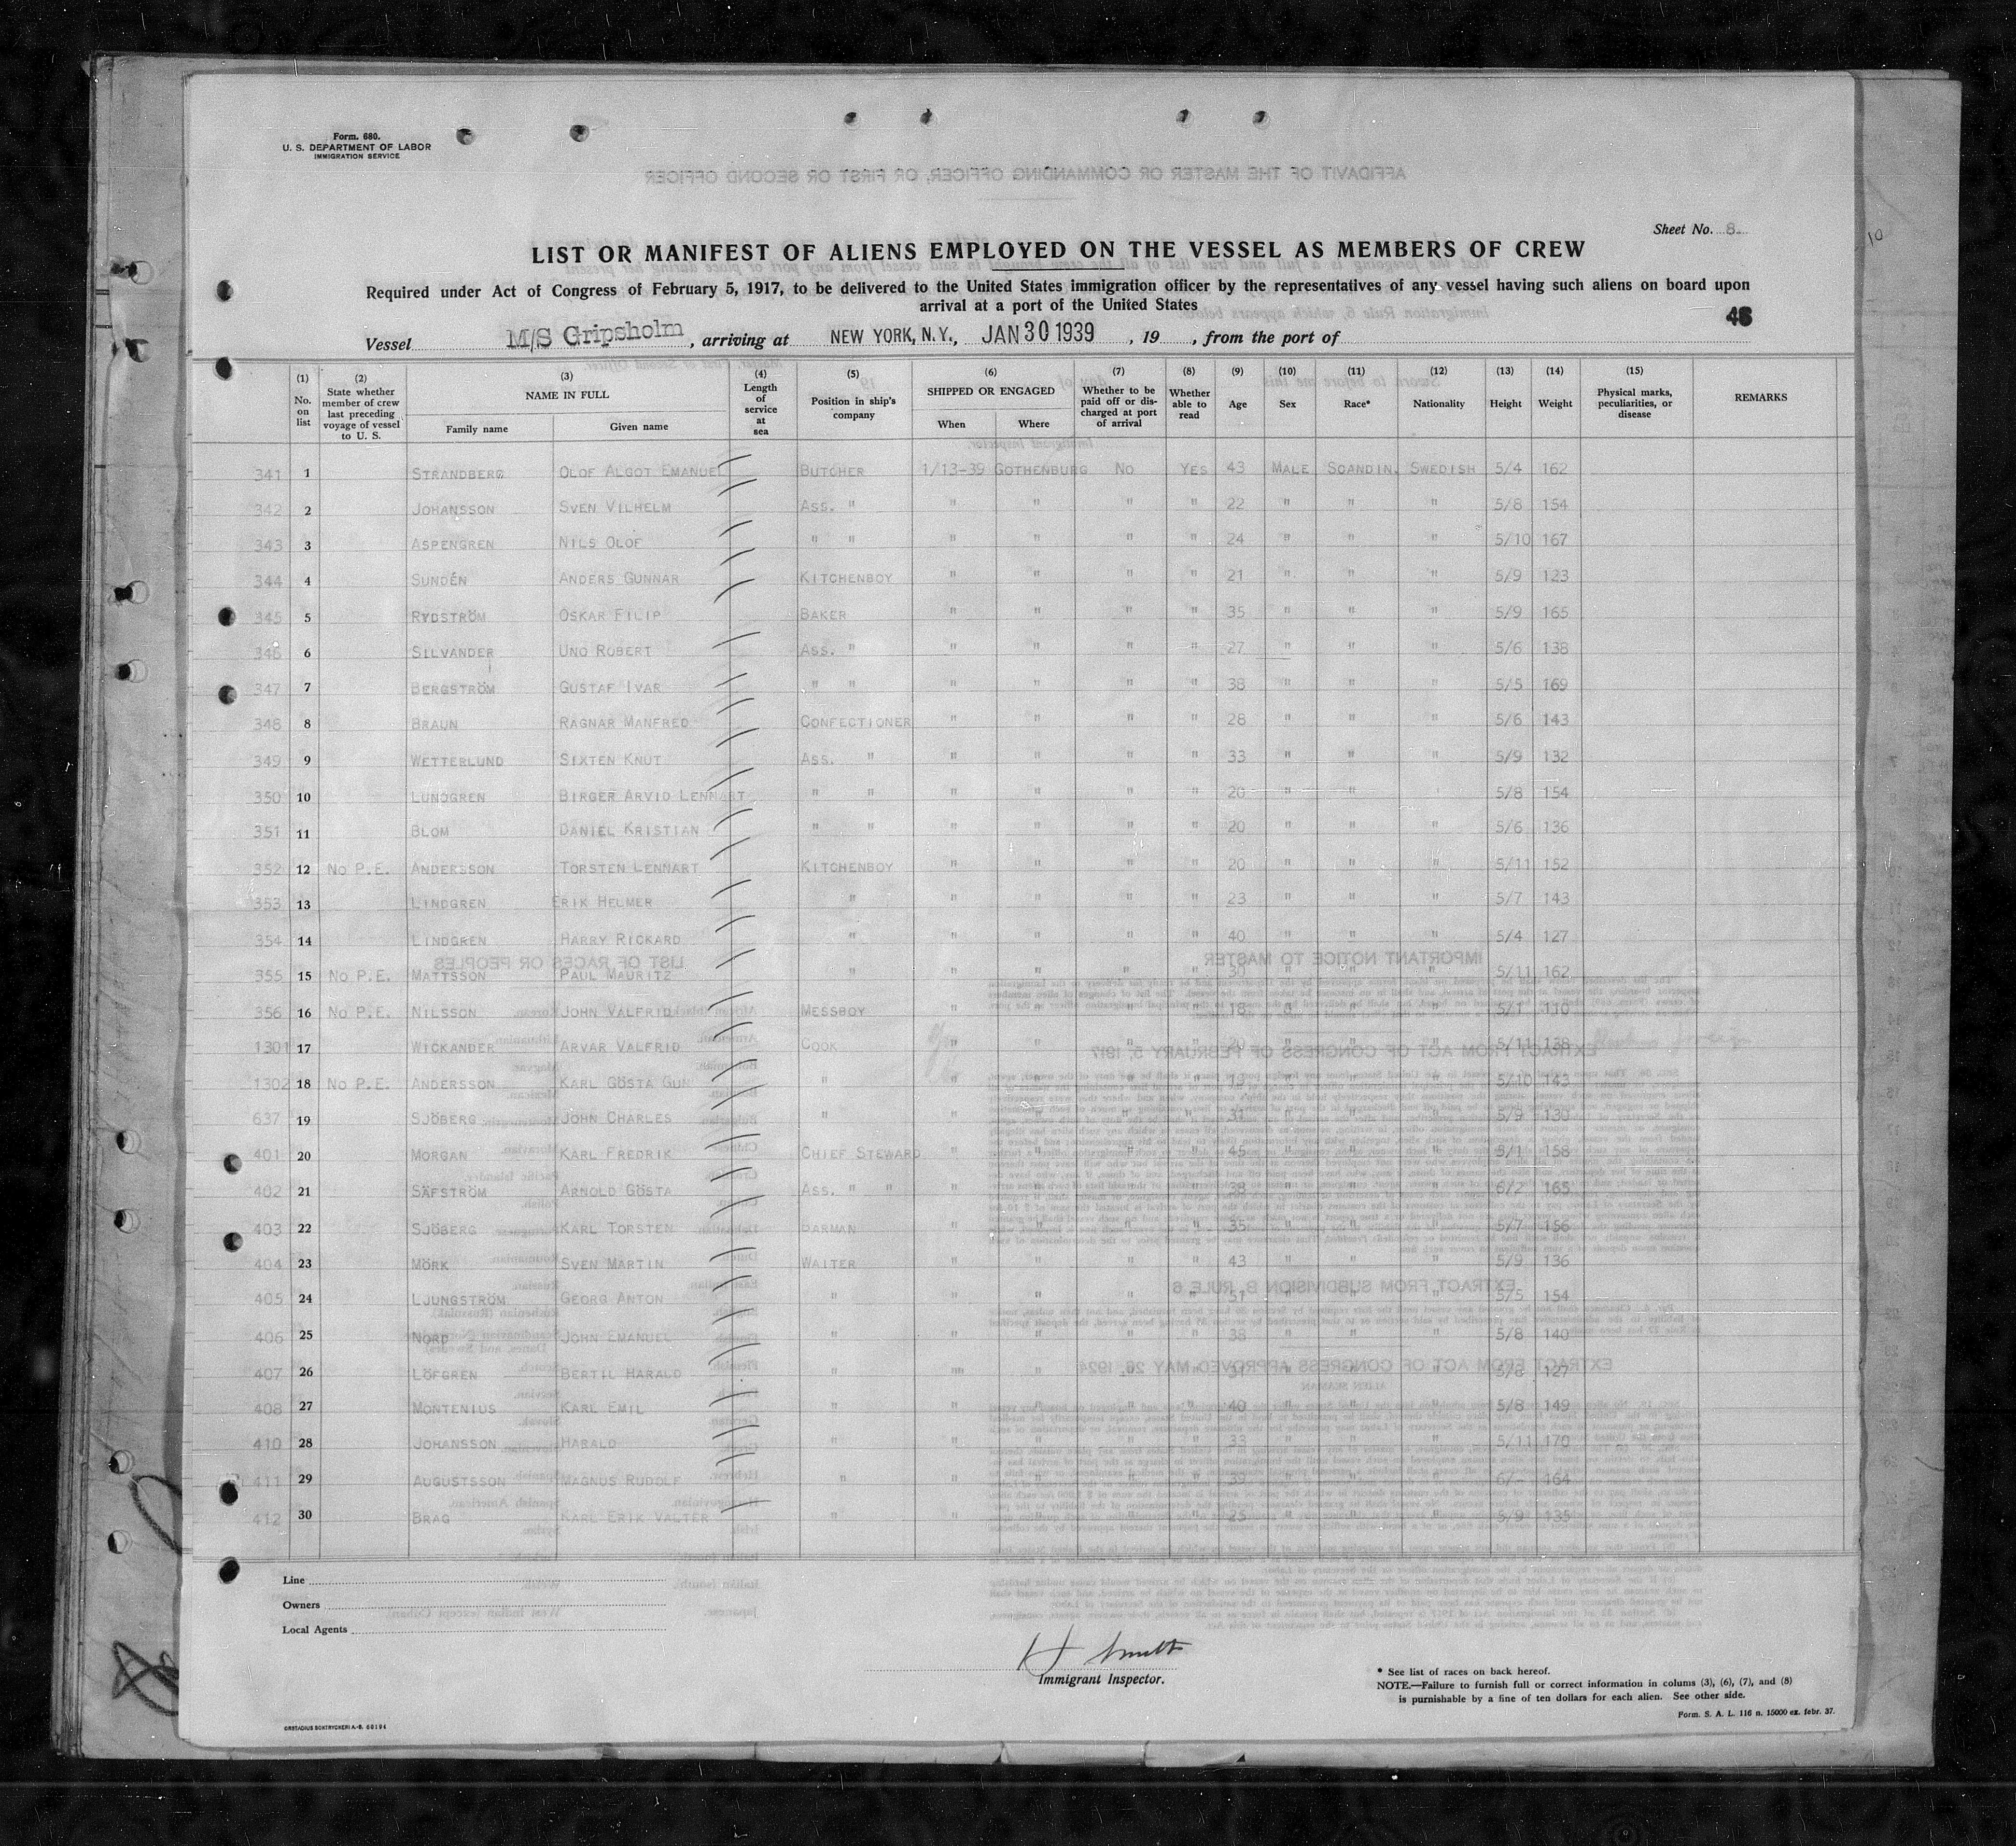 Form. 680.
U. S. DEPARTMENT OF LABOR
IMMIGRATION SERVICE
Sheet No. 8
LIST OR MANIFEST OF ALIENS EMPLOYED ON THE VESSEL AS MEMBERS OF CREW
Required under Act of Congress of February 5, 1917, to be delivered to the United States immigration officer by the representatives of any vessel having such aliens on board upon
arrival at a port of the United States
Vessel M/S Gripsholm, arriving at NEW YORK, N.Y., JAN 30 1939, 19 , from the port of
(1) No. on list (2) State whether member of crew last preceding voyage of vessel to U. S. (3) NAME IN FULL Family name Given name (4) Length of service at sea (5) Position in ship's company (6) SHIPPED OR ENGAGED When Where (7) Whether to be paid off or discharged at port of arrival (8) Whether able to read (9) Age (10) Sex (11) Race* (12) Nationality (13) Height (14) Weight (15) Physical marks, peculiarities, or disease REMARKS
341 1 STRANDBERG OLOF ALGOT EMANUEL BUTCHER 1/13-39 GOTHENBURG NO YES 43 MALE SCANDIN. SWEDISH 5/4 162
342 2 JOHANSSON SVEN VILHELM ASS. " " " " " 22 " " " 5/8 154
343 3 ASPENGREN NILS OLOF " " " " " " 24 " " " 5/10 167
344 4 SUNDÉN ANDERS GUNNAR KITCHENBOY " " " " 21 " " " 5/9 123
345 5 RYDSTRÖM OSKAR FILIP BAKER " " " " 35 " " " 5/9 165
346 6 SILVANDER UNO ROBERT ASS. " " " " " 27 " " " 5/6 138
347 7 BERGSTRÖM GUSTAF IVAR " " " " " " 38 " " " 5/5 169
348 8 BRAUN RAGNAR MANFRED CONFECTIONER " " " " 28 " " " 5/6 143
349 9 WETTERLUND SIXTEN KNUT ASS. " " " " " 33 " " " 5/9 132
350 10 LUNDGREN BIRGER ARVID LENNART " " " " " " 20 " " " 5/8 154
351 11 BLOM DANIEL KRISTIAN " " " " " " 20 " " " 5/6 136
352 12 NO P.E. ANDERSSON TORSTEN LENNART KITCHENBOY " " " " 20 " " " 5/11 152
353 13 LINDGREN ERIK HELMER " " " " " 23 " " " 5/7 143
354 14 LINDGREN HARRY RICKARD " " " " " 40 " " " 5/4 127
355 15 NO P.E. MATTSSON PAUL MAURITZ " " " " " 30 " " " 5/11 162
356 16 NO P.E. NILSSON JOHN VALFRID MESSBOY " " " " 18 " " " 5/1 110
1301 17 WICKANDER ARVAR VALFRID COOK " " " " 20 " " " 5/11 138
1302 18 NO P.E. ANDERSSON KARL GÖSTA GUN " " " " " 19 " " " 5/10 143
637 19 SJÖBERG JOHN CHARLES " " " " " 31 " " " 5/9 130
401 20 MORGAN KARL FREDRIK CHIEF STEWARD " " " " 45 " " " 5/1 158
402 21 SÄFSTRÖM ARNOLD GÖSTA ASS. " " " " " " 38 " " " 6/2 165
403 22 SJÖBERG KARL TORSTEN BARMAN " " " " 35 " " " 5/7 156
404 23 MÖRK SVEN MARTIN WAITER " " " " 43 " " " 5/9 136
405 24 LJUNGSTRÖM GEORG ANTON " " " " " 51 " " " 5/5 154
406 25 NORD JOHN EMANUEL " " " " " 38 " " " 5/8 140
407 26 LÖFGREN BERTIL HARALD " "" " " " 31 " " " 5/8 127
408 27 MONTENIUS KARL EMIL " " " " " 40 " " " 5/8 149
410 28 JOHANSSON HARALD " " " " " 33 " " " 5/11 170
411 29 AUGUSTSSON MAGNUS RUDOLF " " " " " 39 " " " 6/- 164
412 30 BRAG KARL ERIK VALTER " " " " " 25 " " " 5/9 135
Line
Owners
Local Agents
H Smith
Immigrant Inspector.
* See list of races on back hereof.
NOTE.—Failure to furnish full or correct information in colums (3), (6), (7), and (8)
is punishable by a fine of ten dollars for each alien. See other side.
Form. S. A. L. 116 n. 15000 ex. febr. 37.